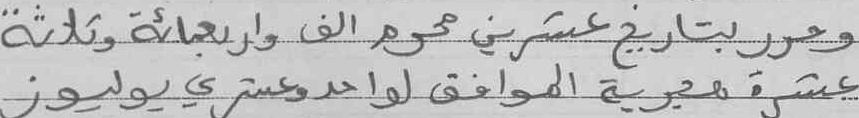 وحرر بتاريخ عشرين محرم الف واربعمائة وثلاثة
عشرة هجرية الموافق لواحد وعشري يوليوز